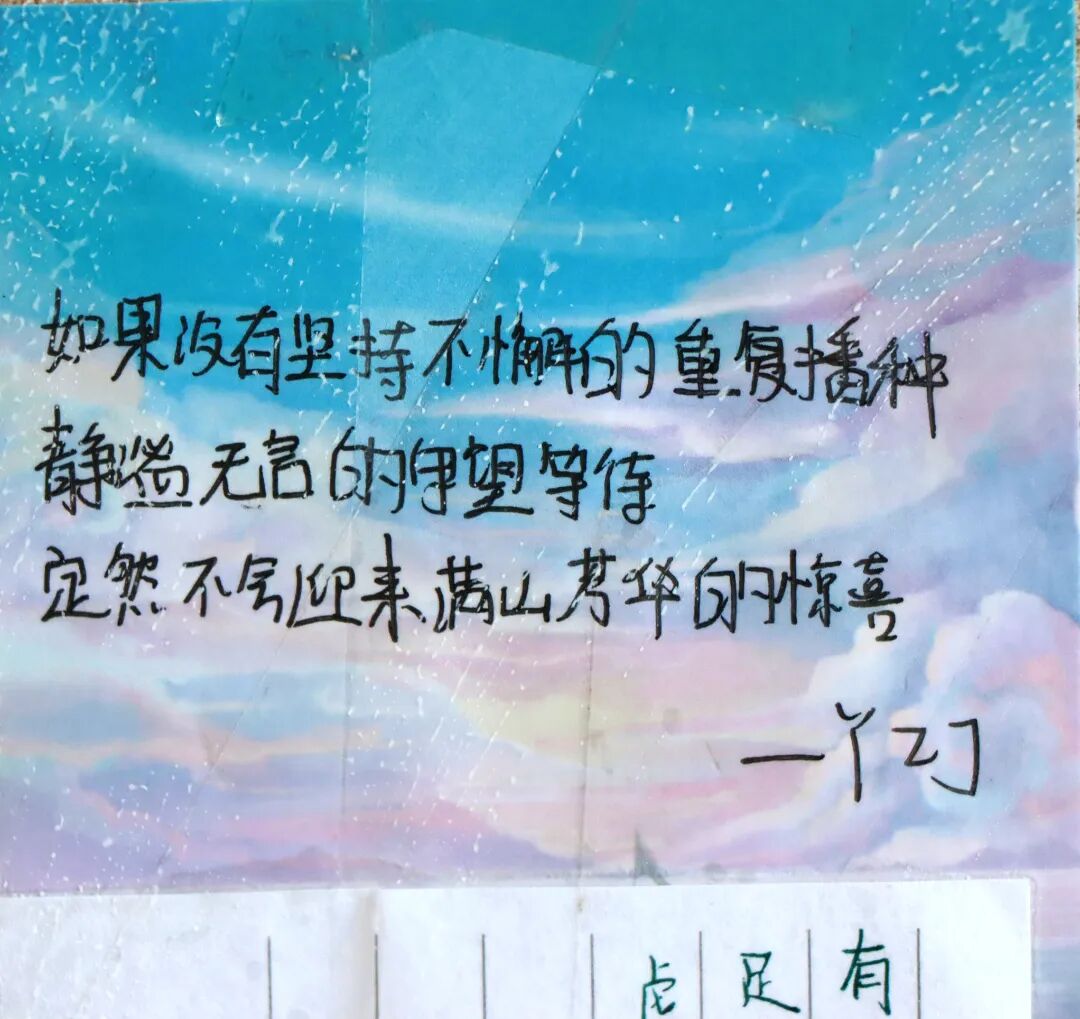 如果没有坚持不懈的重复播种
静谧无言的守望等待
定然不会迎来满山芳华的惊喜
足有